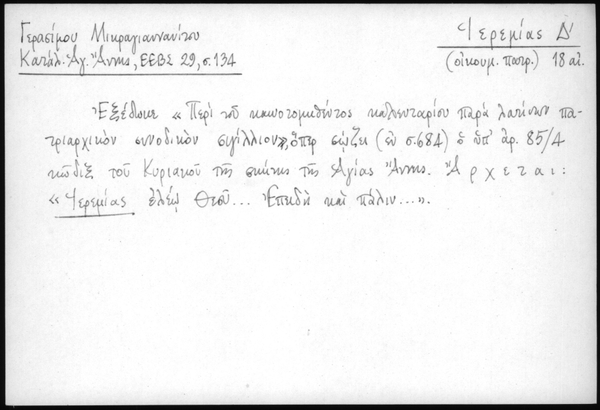 Γερασίμου Μικραγιαννανίτου
Ἱερεμίας Δ'
Κατάλ. Ἁγ. Ἄννης, ΕΕΒΣ 29, σ. 134
(οἰκουμ. πατρ.) 18 αἰ.
Ἐξέδωκε «Περὶ τοῦ καινοτομηθέντος καλενταρίου παρὰ λατίνων πα-
τριαρχικὸν συνοδικὸν σιγίλλιον», ὅπερ σῴζει (ἐν σ. 684) ὁ ὑπ' ἀρ. 85/4
κῶδιξ τοῦ Κυριακοῦ τῆς σκήτης τῆς Ἁγίας Ἄννης. Ἄρχεται:
«Ἱερεμίας ἐλέῳ Θεοῦ... Ἐπειδὴ καὶ πάλιν...».